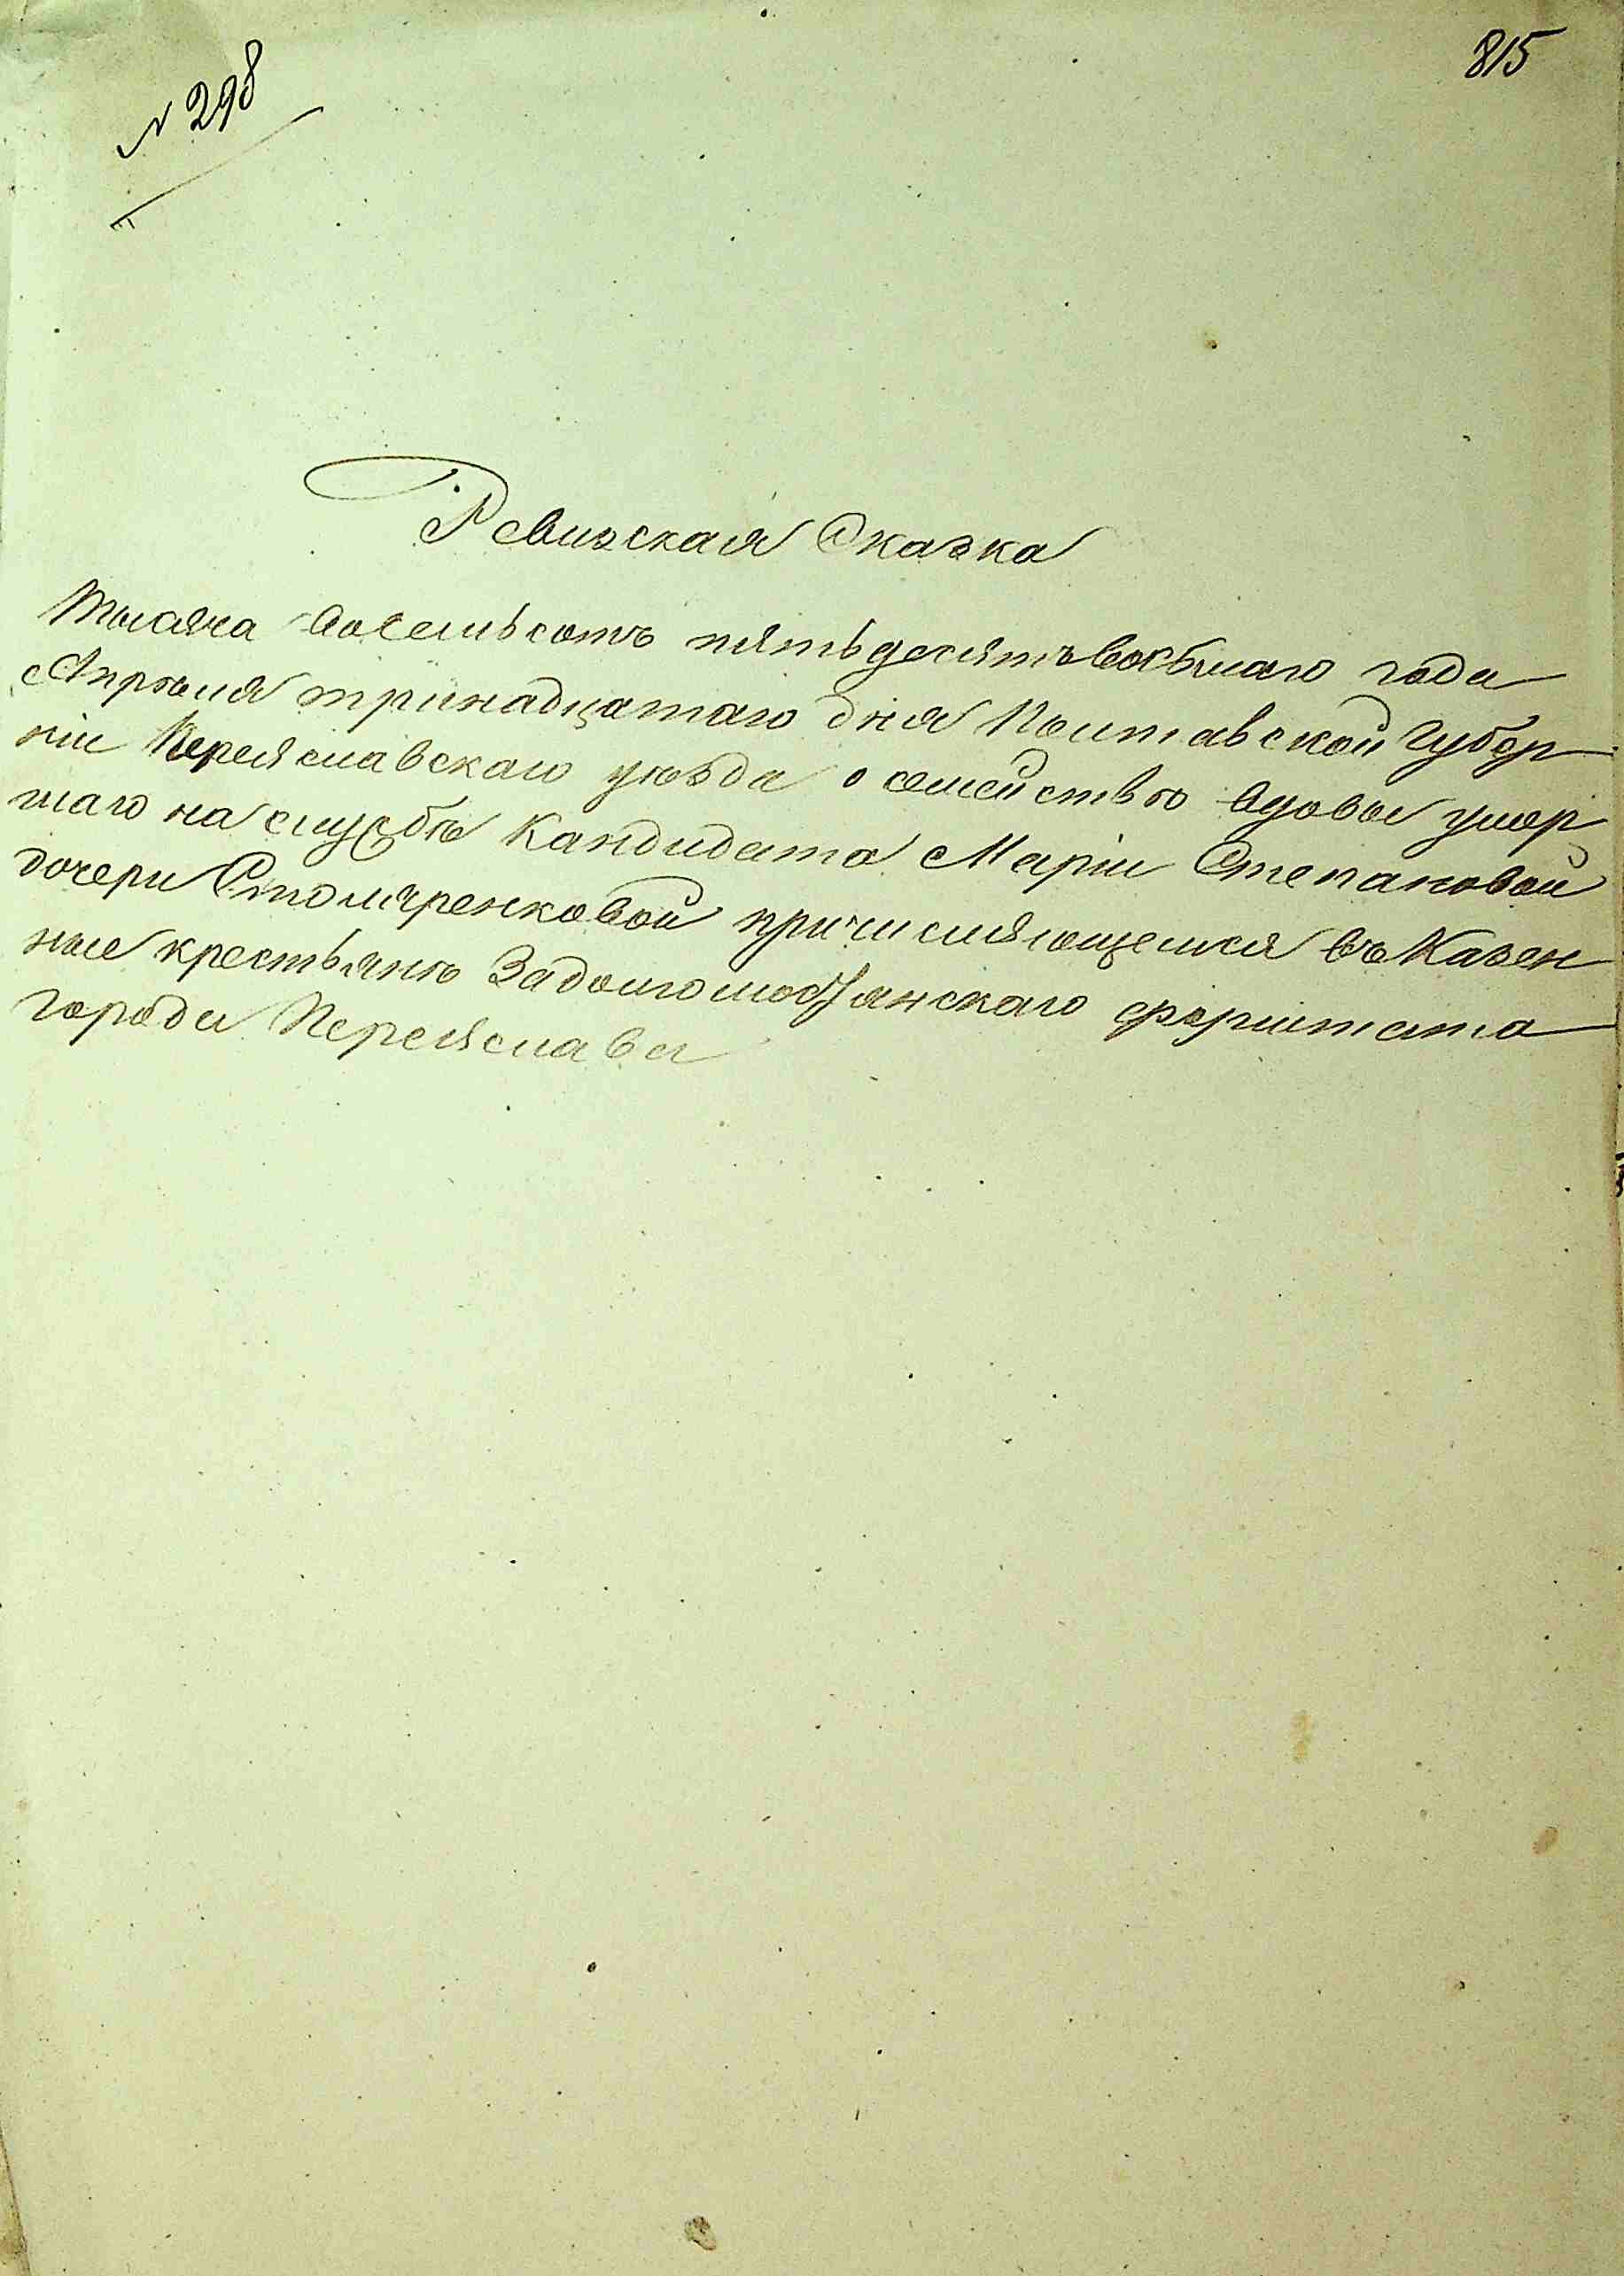 № 298
815
Ревизская Сказка
Тысяча восемьсотъ пятьдесятъ восьмаго года
Апрѣля тринадцатаго дня Полтавской Губер
ніи Переяславскаго уѣзда о семействѣ вдовы умер
шаго на службѣ Кандидата Маріи Степановой
дочери Столяренковой причисляющейся въ Казен
ные крестьяне Задолгомостянскаго форштата
города Переяслава